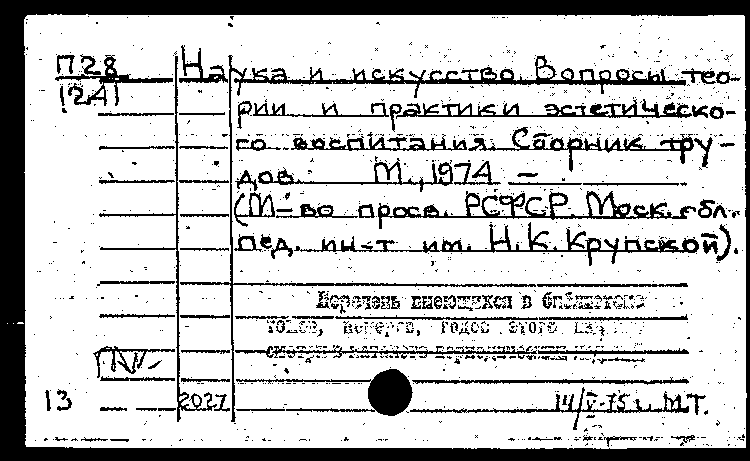 П28 Наука и искусство. Вопросы тео-
1241 рии и практики эстетическо-
го воспитания. Сборник тру-
дов. М., 1974 —
(М-во просв. РСФСР. Моск. обл.
пед. ин-т им. Н.К. Крупской).
Перечень имеющихся в библиотеке
томов, номеров, годов этого
смотри в каталоге периодических
13 2027 14/V-75 г. М.Т.